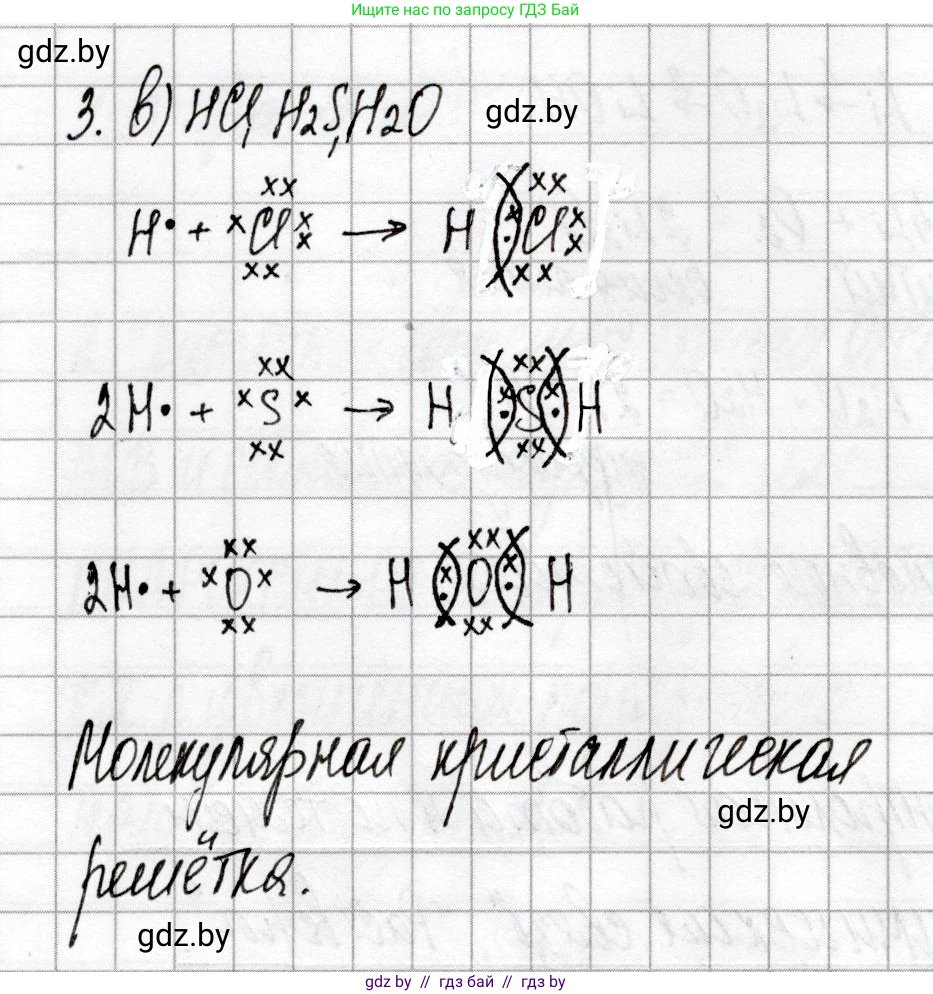 Ищите нас по запросу ГДЗ Бай
gdz.by
3. в) HCl, H₂S, H₂O
gdz.by
H· + Cl → H Cl
2H· + S → H S H
2H· + O → H O H
Молекулярная кристаллическая
gdz.by
решётка.
gdz.by
gdz.by // гдз бай // gdz.by